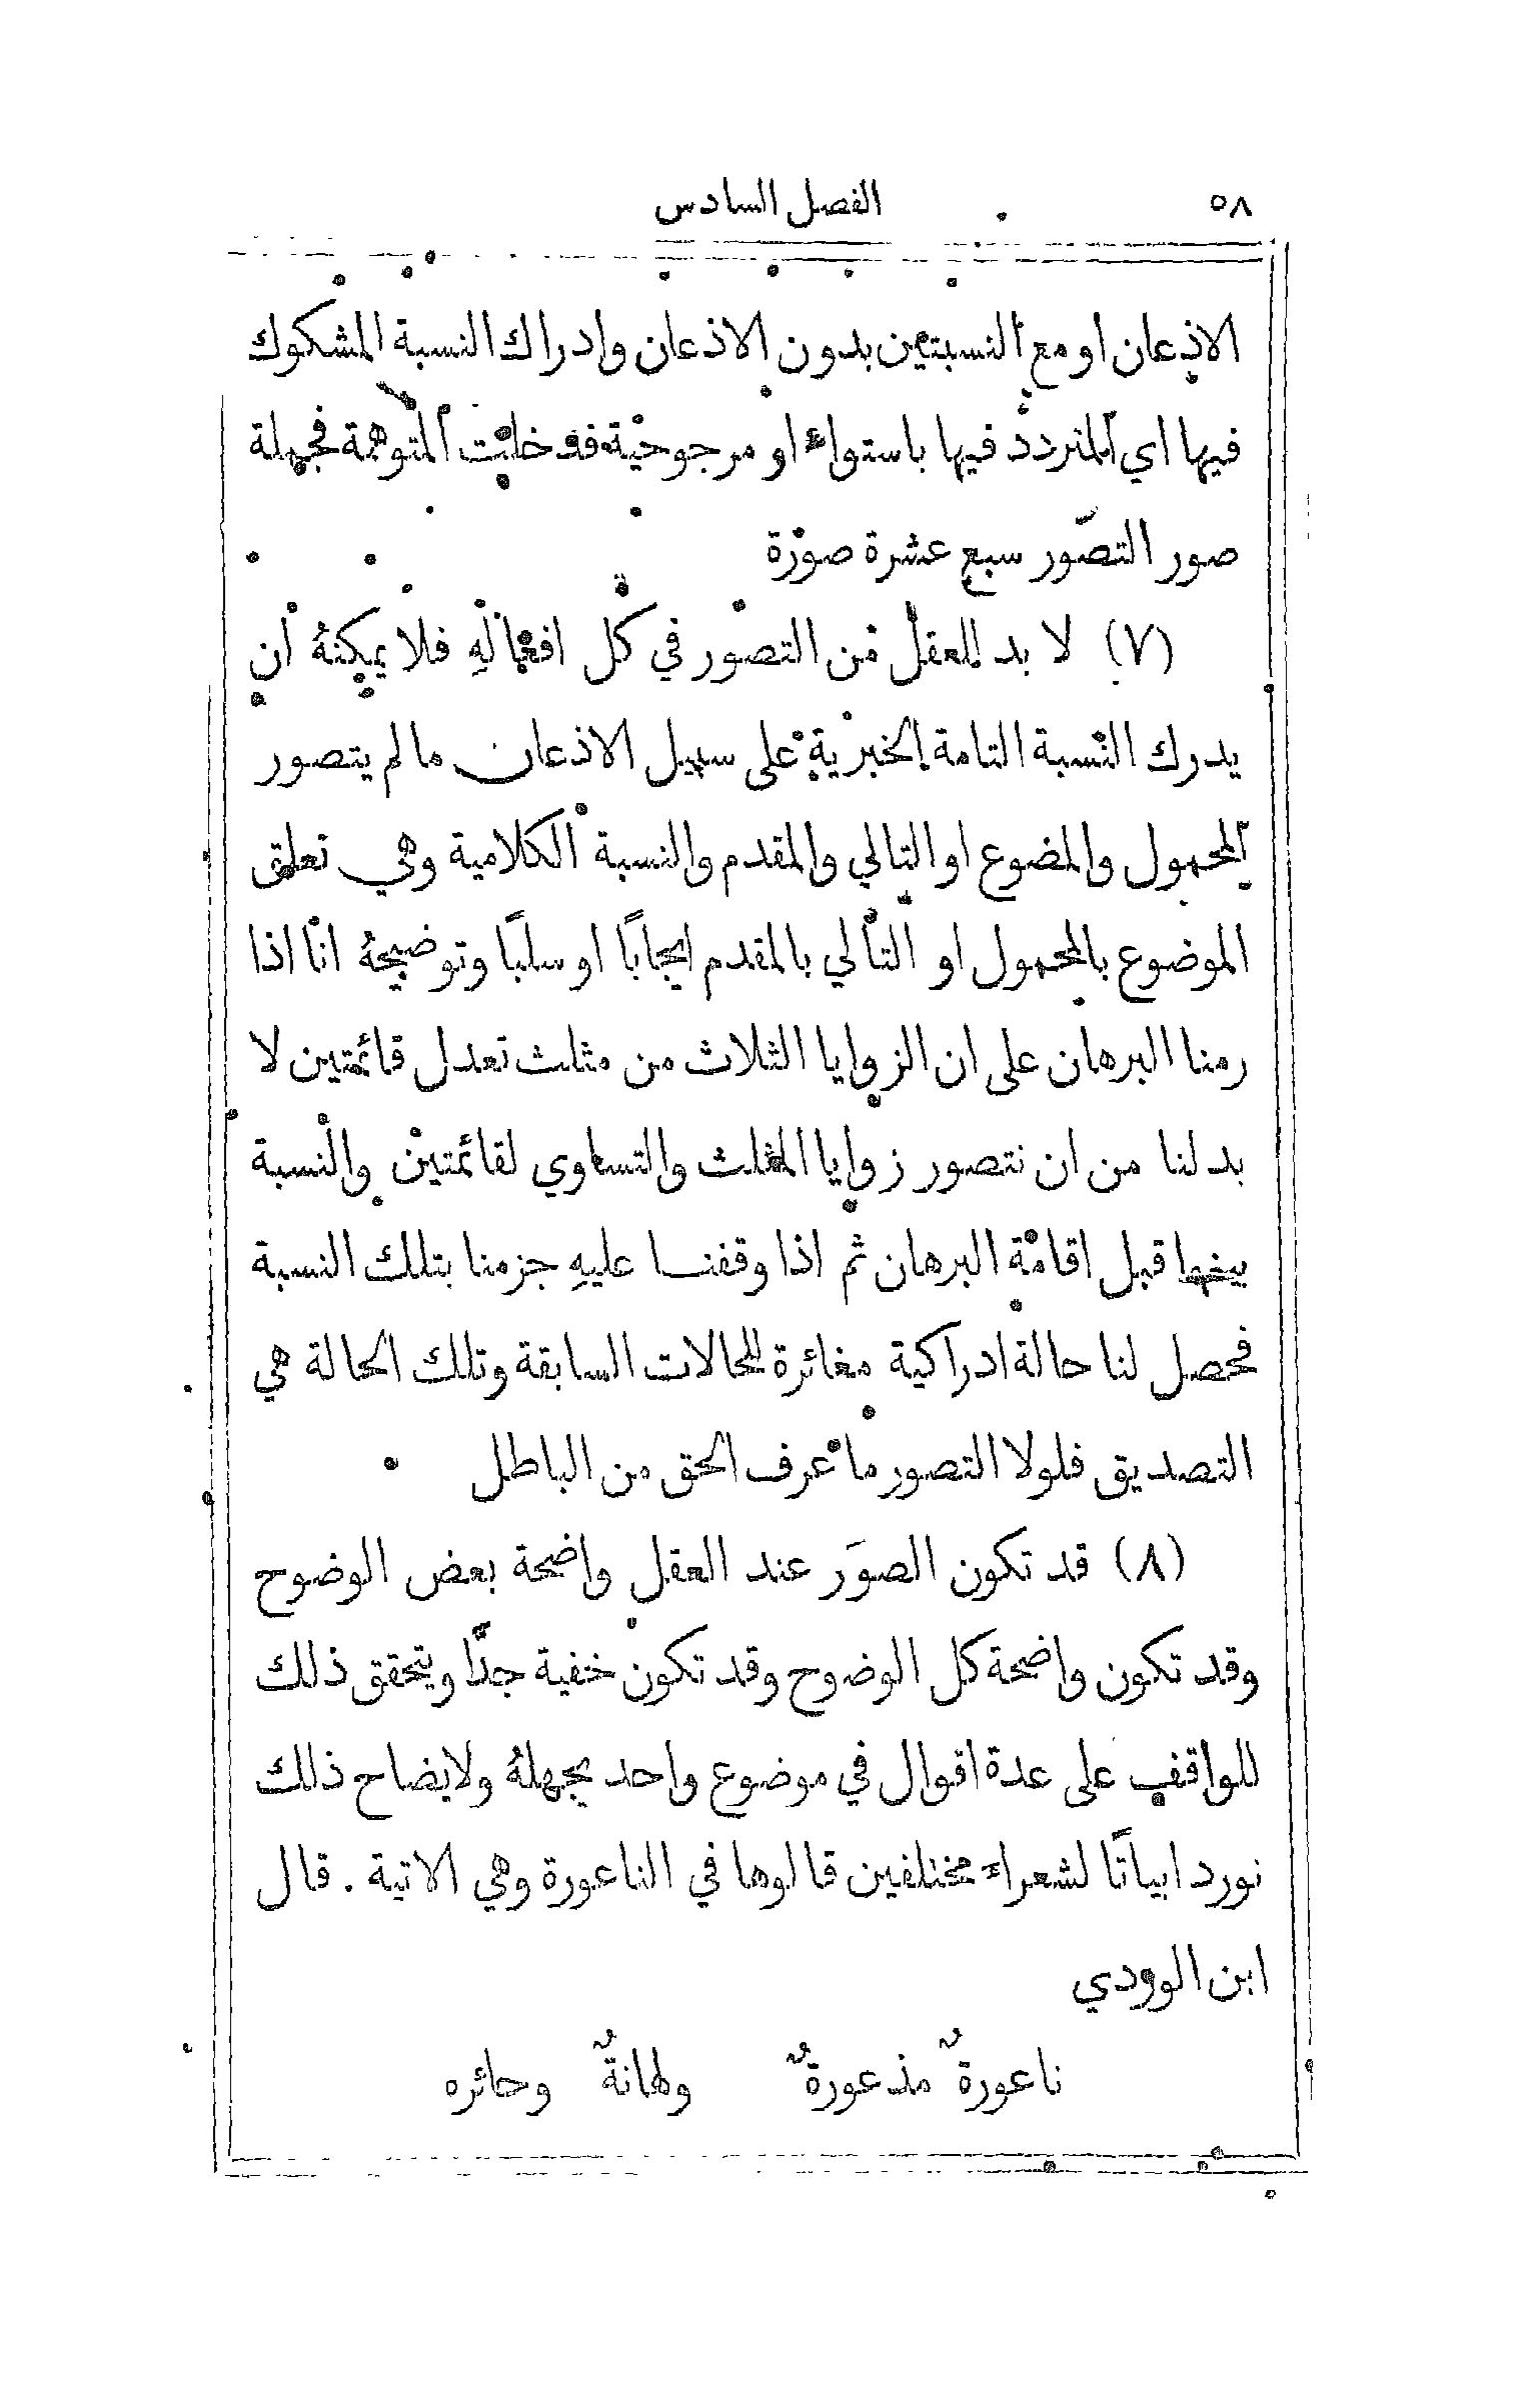 ٥٨ الفصل السادس
الاذعان او مع النسبتين بدون الاذعان وادراك النسبة المشكوك
فيها اي المتردد فيها باستواء او مرجوحية فقد خليت المتوهمة فجملة
صور التصّور سبع عشرة صورة
(٧) لا بد للعقل من التصور في كل افعالهِ فلا يمكنهُ ان
يدرك النسبة التامة الخبرية على سبيل الاذعان ما لم يتصور
المحمول والمضوع او التالي والمقدم والنسبة الكلامية وهي تعلق
الموضوع بالمحمول او التالي بالمقدم ايجابًا او سلبًا وتوضيحهُ انا اذا
رمنا البرهان على ان الزوايا الثلاث من مثلث تعدل قائمتين لا
بد لنا من ان نتصور زوايا المثلث والتساوي لقائمتين والنسبة
بينهما قبل اقامة البرهان ثم اذا وقفنا عليهِ جزمنا بتلك النسبة
فحصل لنا حالة ادراكية مغائرة للحالات السابقة وتلك الحالة هي
التصديق فلولا التصور ما عرف الحق من الباطل
(٨) قد تكون الصوَر عند العقل واضحة بعض الوضوح
وقد تكون واضحة كل الوضوح وقد تكون خفية جدًّا ويتحقق ذلك
للواقف على عدة اقوال في موضوع واحد يجهلهُ ولايضاح ذلك
نورد ابياتًا لشعراء مختلفين قالوها في الناعورة وهي الاتية . قال
ابن الوردي
ناعورةٌ مذعورةٌ ولهانةٌ وحائره